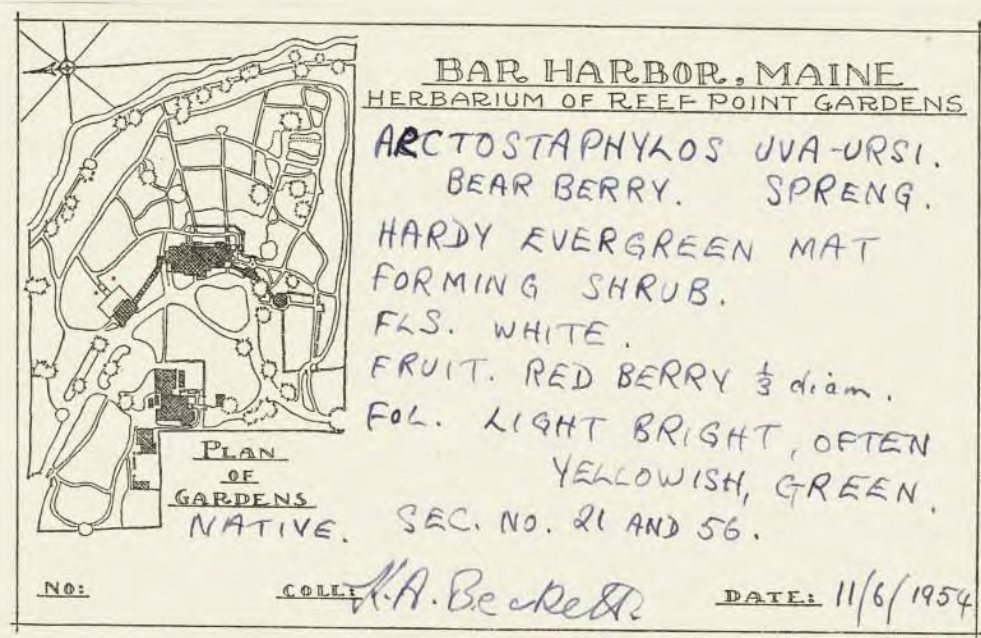 BAR HARBOR, MAINE
HERBARIUM OF REEF POINT GARDENS
ARCTOSTAPHYLOS UVA-URSI.
BEAR BERRY. SPRENG.
HARDY EVERGREEN MAT
FORMING SHRUB.
FLS. WHITE.
FRUIT. RED BERRY ⅓ diam.
FOL. LIGHT BRIGHT, OFTEN
YELLOWISH, GREEN.
PLAN
OF
GARDENS
NATIVE. SEC. NO. 21 AND 56.
NO: COLL: K.A. Beckett. DATE: 11/6/1954